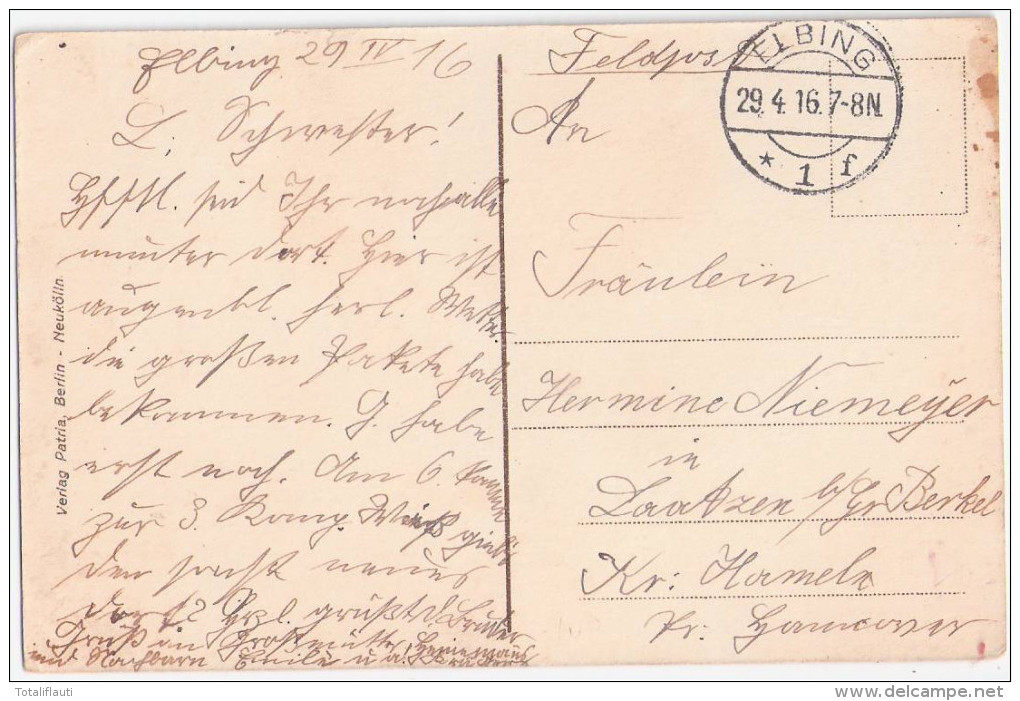 Elbing 29 IV 16
L. Schwester!
Hfftl. seid Ihr noch alle
munter dort. Hier ist
augenbl. herl. Wetter.
die großen Pakete habe
bekommen. G. habe
erst noch. Am 6. kommen
zur 3. Komp. Was giebts
den sonst neues
dort? Hrzl. grüßt d. Bruder
Gruß an Großmutter
und Nachbarn Emile u.a.
Verlag Patria, Berlin - Neukölln
Feldpost
ELBING
29.4.16.7-8N.
* 1 f
An
Fräulein
Hermine Niemeyer
in
Laatzen b/Gr Berkel
Kr: Hameln
Pr. Hannover
Totaliflauti
delcampe.net